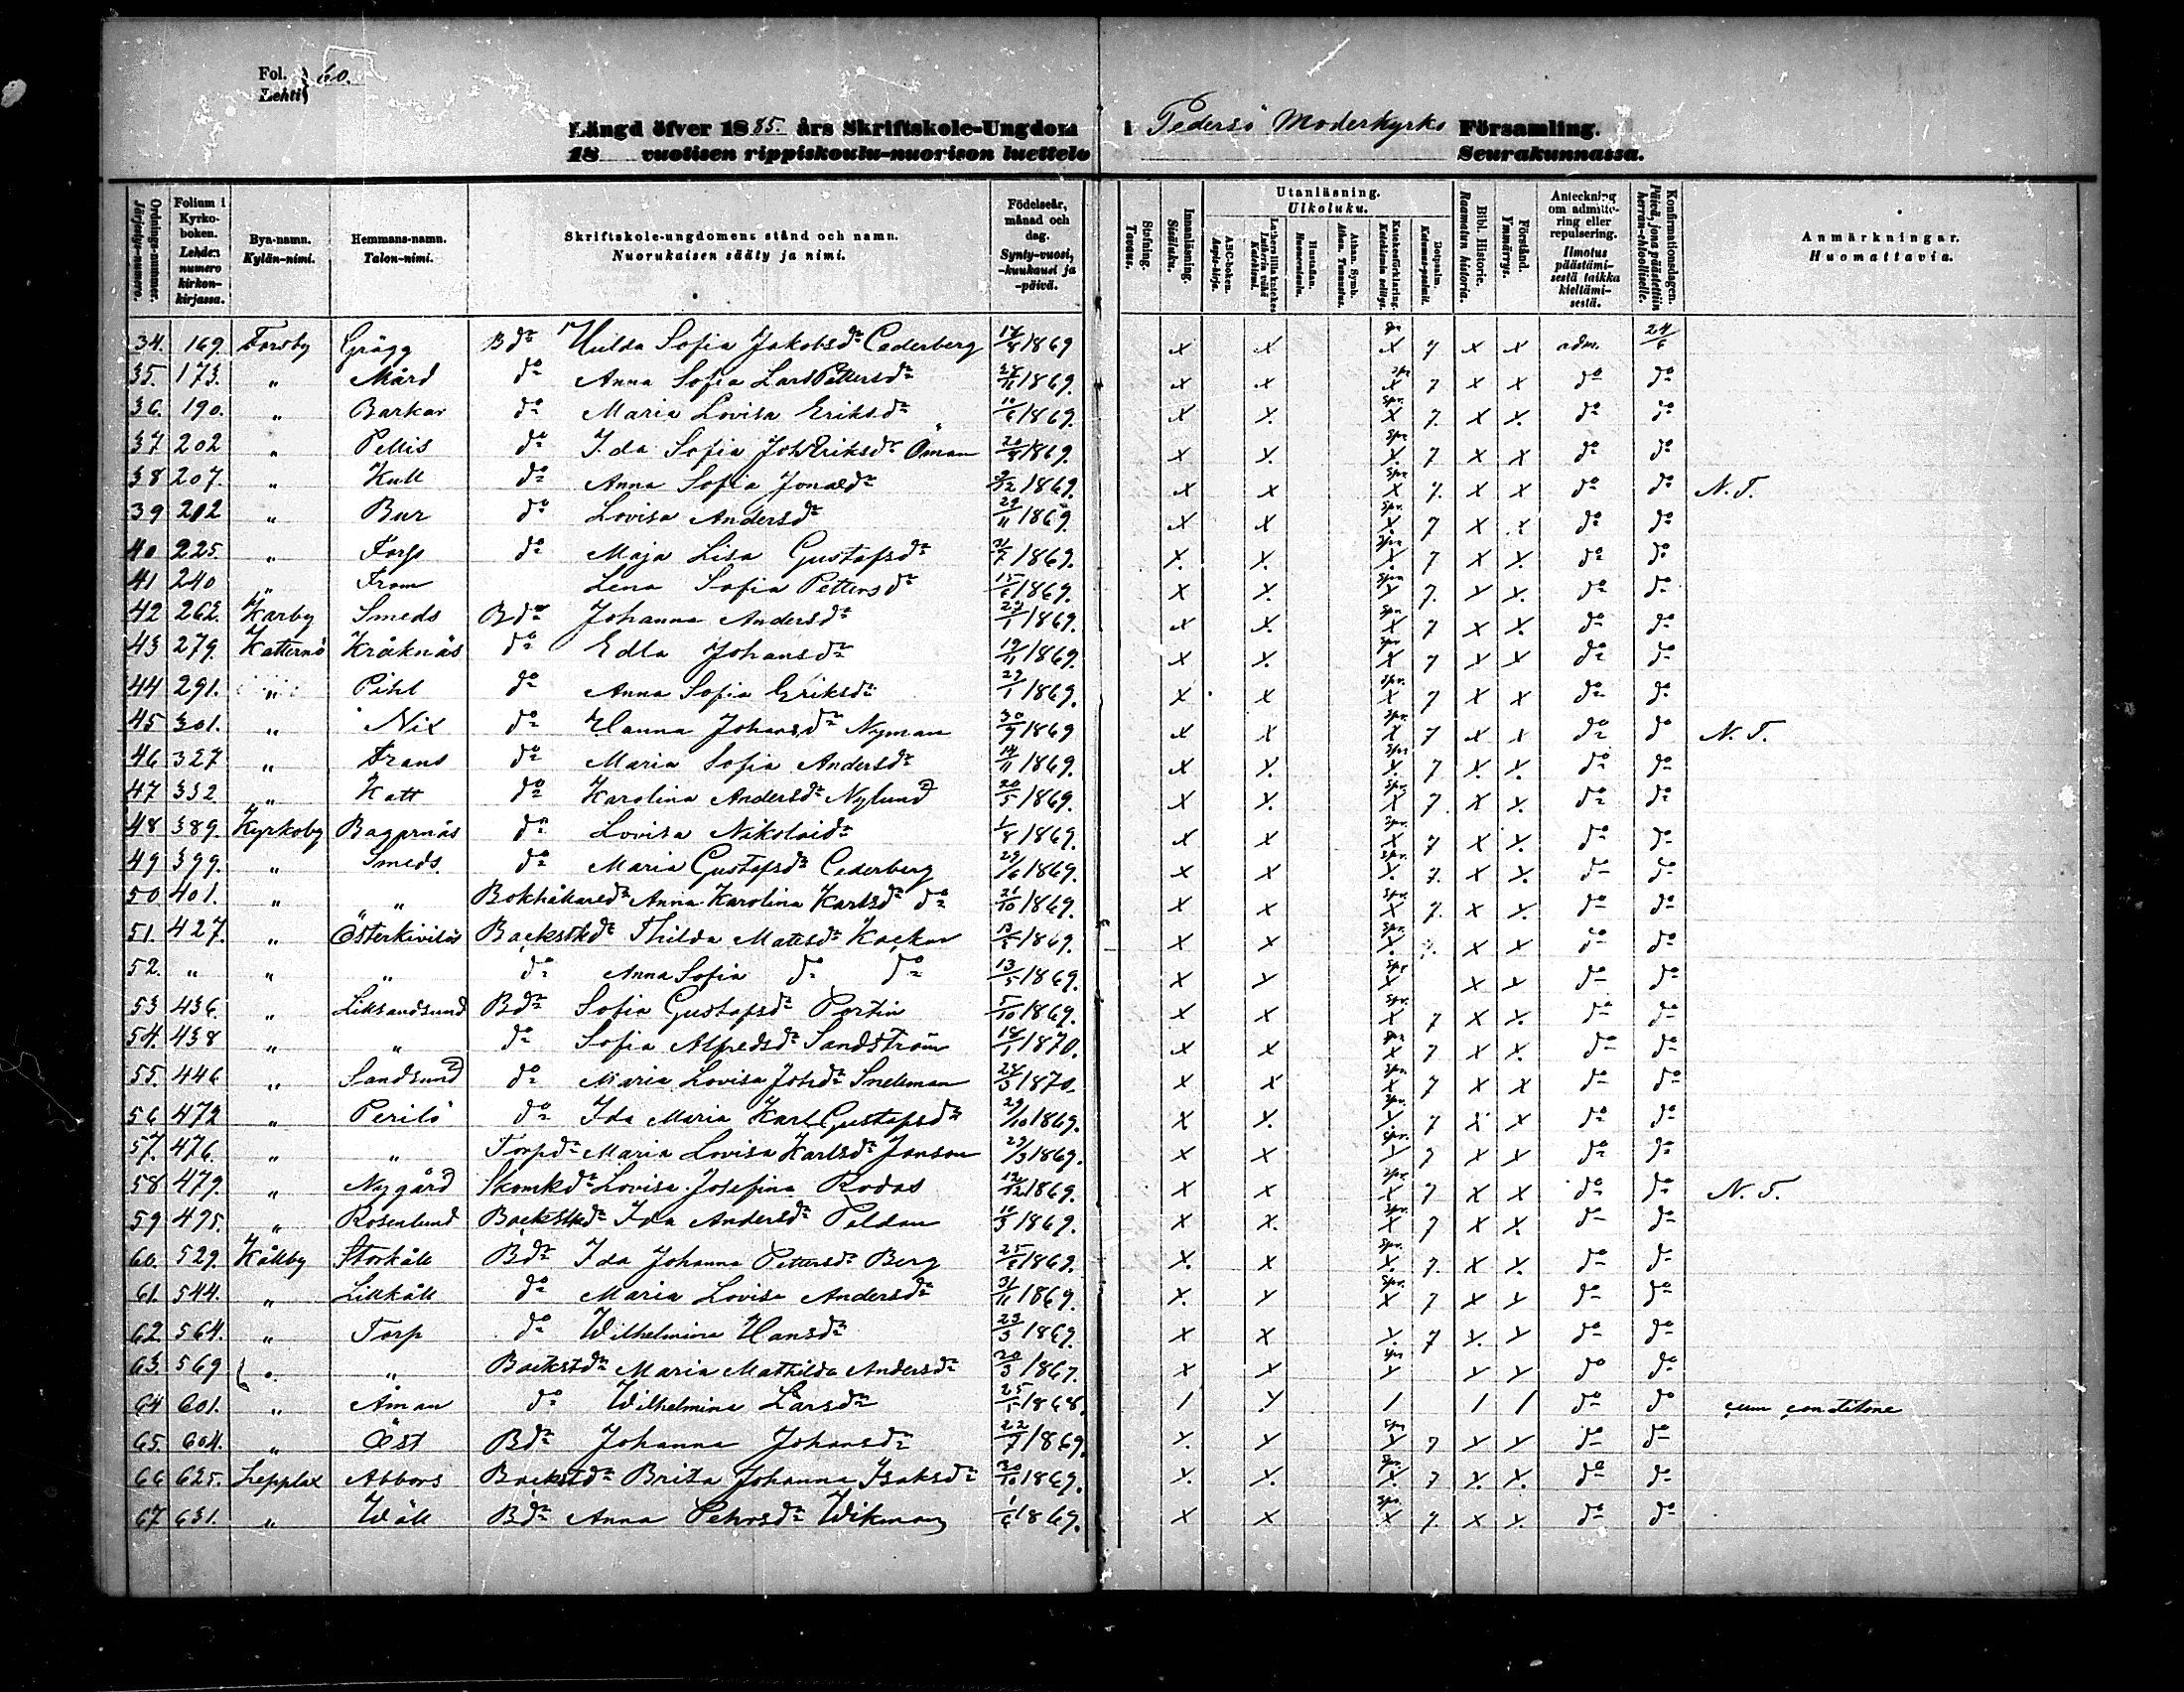 Fol. 60.
Lehti
Längd öfver 1885. års Skriftskole-Ungdom i Pedersö Moderkyrko Församling.
18 vuotisen rippiskoulu-nuorison luettelo Seurakunnassa.
Ordnings-nummer. Järjestys-numero.
Folium i Kyrko-boken. Lehden numero kirkon-kirjassa.
Bya-namn. Kylän-nimi.
Hemmans-namn. Talon-nimi.
Skriftskole-ungdomens stånd och namn. Nuorukaisen sääty ja nimi.
Födelseår, månad och dag. Synty-vuosi, -kuukausi ja -päivä.
Stafning. Tavuus.
Innanläsning. Sisäluku.
Utanläsning. Ulkoluku.
ABC-boken. Aapis-kirja.
Lutheri lilla katekes Lutherin vähä Katekismi.
Hustaflan. Huoneentaulu.
Athan. Symb. Athan. Tunnustus.
Katekesförklaring. Katekismin selitys.
Botpsalm. Katumus-psalmit.
Bibl. Historie. Raamatun historia.
Förstånd. Ymmärrys.
Anteckning om admitte-ring eller repulsering. Ilmotus päästämi-sestä taikka kieltämi-sestä.
Konfirmationsdagen. Päivä, jona päästettiin herran-ehtoolliselle.
Anmärkningar. Huomattavia.
34. 169. Forsby Grägg Bdr Hulda Sofia Jakobsdr Cederberg 1869 x x x 7 x x adm. 24/6
35. 173. " Mård do Anna Sofia Lars Pettersdr 1869. x x spr x 7 x x do do
36. 190. " Barkar do Maria Lovisa Eriksdr 10/6 1869. x x. spr. x 7. x x. do do
37 202 " Pellis do Ida Sofia Joh Eriksdr Öman 20/8 1869. x x. spr x. 7 x x do do
38 207. " Kull do Anna Sofia Jonasdr 2/12 1869. x x spr x 7. x x do do N. T.
39 212 " Bur do Lovisa Andersdr 29/11 1869. x x spr. x. 7 x x do do
40 225. " Fors do Maja Lisa Gustafsdr 1869. x. x. spr x. 7 x x. do do
41 240 " From Lena Sofia Pettersdr 1869. x x. spr x 7. x x. do do
42 262. Karby Smeds Bdr Johanna Andersdr 29/1 1869. x x. spr x 7 x x. do do
43 279. Katternö Kråknäs do Edla Johansdr 19/11 1869. x x. spr x 7 x x do do
44 291. Pihl do Anna Sofia Eriksdr 29/1 1869. x x spr. x 7 x x do do
45 301. " Nix do Hanna Johansdr Nyman 30/9 1869 x x spr. x 7 x x do do N. T.
46 327 " Frans do Maria Sofia Andersdr 14/11 1869. x x. spr x. 7 x. x. do do
47 332. " Katt do Karolina Andersdr Nylund 20/5 1869. x x. spr x 7. x x. do do
48 389. Kyrkoby Baggrnäs do Lovisa Nikolaidr 1/8 1869. x x spr. x 7 x x. do do
49 399. " Smeds. do Maria Gustafsdr Cederberg 29/6 1869. x x spr. x. 7. x x. do do
50 401. " " Bokhållaredr Anna Karolina Karlsdr do 21/10 1869. x x spr x 7. x x. do do
51. 427. " Österkivilös Backstkdr Thilda Mattsdr Kackur 1869. x x spr x. 7. x x do do
52. " " " do Anna Sofia do do 13/5 1869. x x spr x x x do do
53 436. " Lillsandsund Bdr Sofia Gustafsdr Portin 5/10 1869. x x spr. x 7 x x. do do
54. 438 " " do Sofia Alfredsdr Sandström 18/1 1870. x x spr x 7 x x. do do
55. 446 " Sandsund do Maria Lovisa Johdr Snellman 24/3 1870. x x spr x 7 x x do do
56 472 " Perilö do Ida Maria Karl Gustafsdr 29/10 1869. x x. spr. x 7 x x do do
57. 476. " " Torpdr Maria Lovisa Karlsdr Janson 23/3 1869. x x spr. x 7 x x do do
58 479. " Nygård Skomkdr Lovisa Josefina Rodas 12/12 1869. x x spr. x 7 x x do do N. T.
59 495. " Rosenlund Backstkdr Ida Andersdr Peldan 1869. x x. spr. x 7 x x. do do
60. 529. Kållby Storkåll Bdr Ida Johanna Pettersdr Berg 1869. x. x spr. x. 7. x x. do do
61. 544. " Lillkåll do Maria Lovisa Andersdr 31/11 1869. x. x spr. x 7 x x do do
62 564. " Torp do Wilhelmina Hansdr 23/3 1869. x x x. 7 x. x do do
63. 569 " " Backstdr Maria Mathilda Andersdr 20/3 1867. x x spr x x x do do
64 601. " Åman do Wilhelmina Larsdr 1868. / x / / / do do cum conditione
65. 604. " Öst Bdr Johanna Johansdr 22/7 1869. x. x spr x 7 x x do do
66 625. Lepplax Abbors Backstdr Brita Johanna Isaksdr 30/10 1869. x. x. spr. x. 7 x. x. do do
67 631. " Wäll Bdr Anna Pehrsdr Wikman 1/6 1869. x x spr. x 7. x x. do do